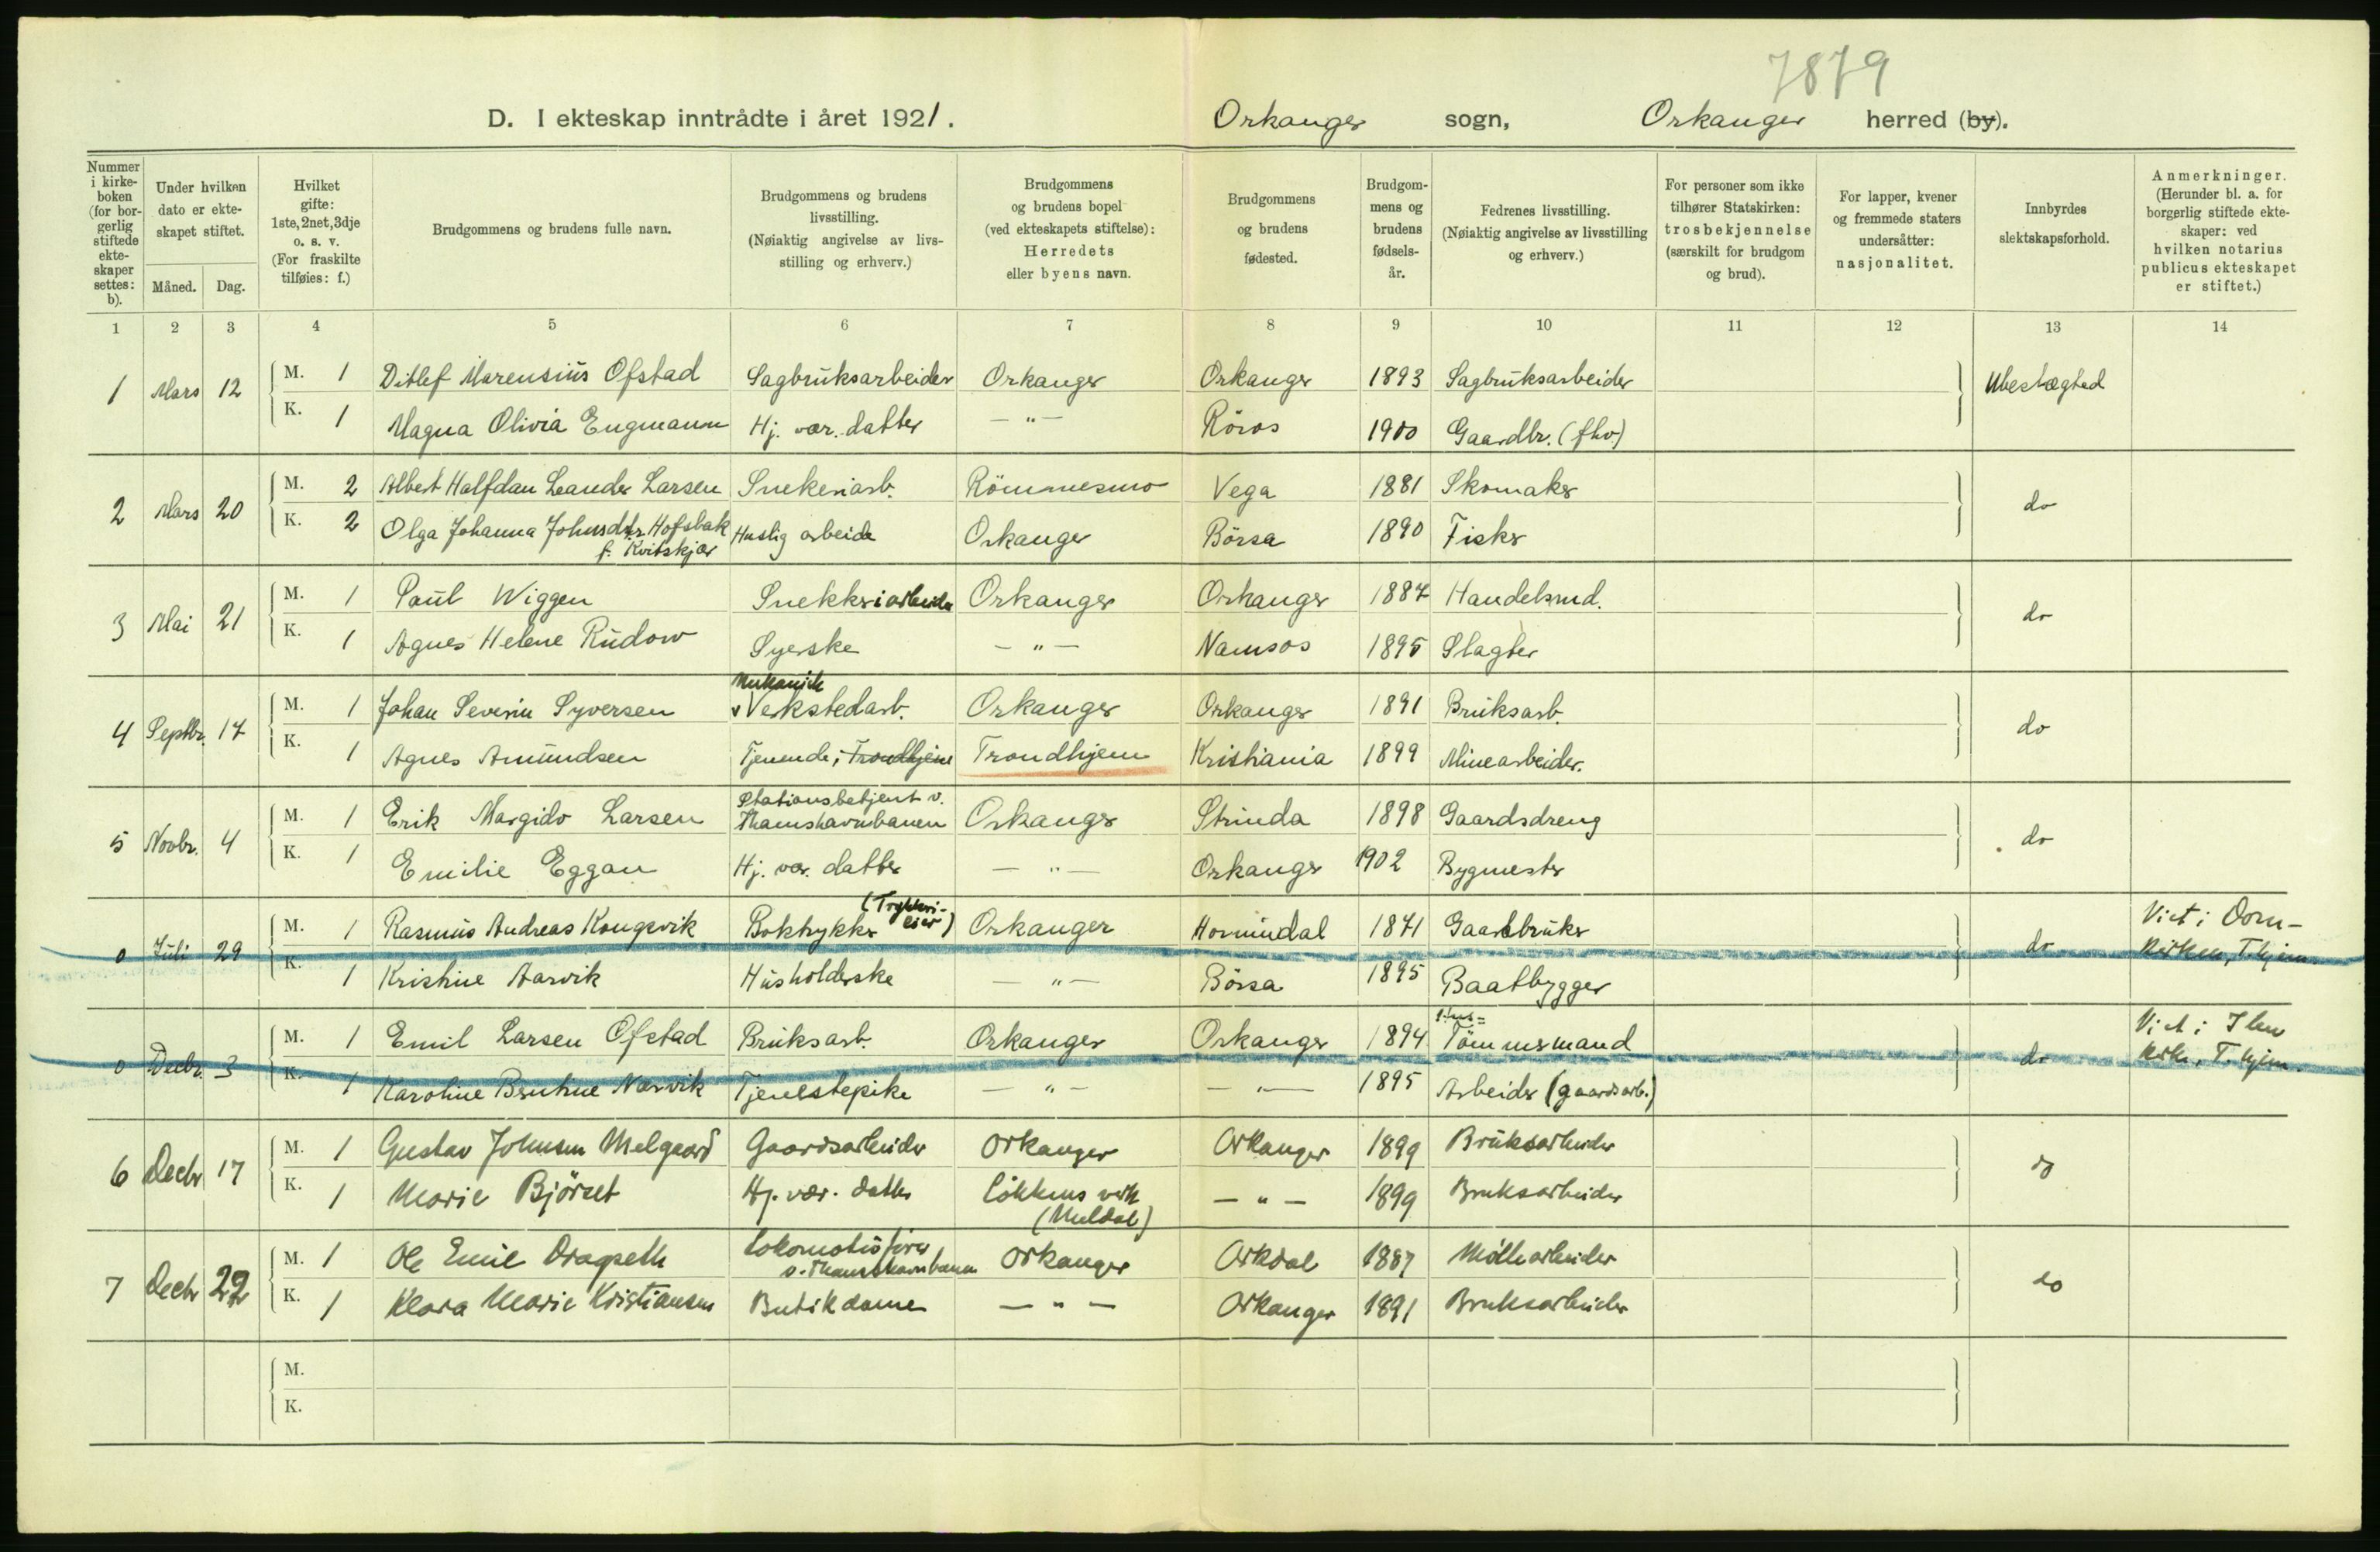 7879
D. I ekteskap inntrådte i året 1921. Orkanger sogn, Orkanger herred (by).
Nummer i kirke- boken (for bor- gerlig stiftede ekte- skaper settes: b).
Under hvilken dato er ekte- skapet stiftet.
Måned. Dag.
Hvilket gifte: 1ste, 2net, 3dje o. s. v. (For fraskilte tilføies: f.)
Brudgommens og brudens fulle navn.
Brudgommens og brudens livsstilling. (Nøiaktig angivelse av livs- stilling og erhverv.)
Brudgommens og brudens bopel (ved ekteskapets stiftelse): Herredets eller byens navn.
Brudgommens og brudens fødested.
Brudgom- mens og brudens fødsels- år.
Fedrenes livsstilling. (Nøiaktig angivelse av livsstilling og erhverv.)
For personer som ikke tilhører Statskirken: trosbekjennelse (særskilt for brudgom og brud).
For lapper, kvener og fremmede staters undersåtter: nasjonalitet.
Innbyrdes slektskapsforhold.
Anmerkninger. (Herunder bl. a. for borgerlig stiftede ekte- skaper: ved hvilken notarius publicus ekteskapet er stiftet.)
1 2 3 4 5 6 7 8 9 10 11 12 13 14
1 Mars 12 M. 1 Ditlef Marensius Ofstad Sagbruksarbeider Orkanger Orkanger 1893 Sagbruksarbeider Ubeslægted
K. 1 Magna Olivia Engmann Hj. vær. datter — " — Röros 1900 Gaardbr. (fhv.)
2 Mars 20 M. 2 Albert Halfdan Leander Larsen Snekeriarb. Römmesmo Vega 1881 Skomaker do
K. 2 Olga Johanna Johnsdtr. Hofsbak Huslig arbeide Orkanger Börsa 1890 Fisker
f. Kvitskjær
3 Mai 21 M. 1 Paul Wiggen Snekkeriarbeider Orkanger Orkanger 1887 Handelsmd. do
K. 1 Agnes Helene Rudow Syerske — " — Namsos 1895 Slagter
Mekanisk
4 Septbr. 17 M. 1 Johan Severin Syversen Verkstedarb. Orkanger Orkanger 1891 Bruksarb. do
K. 1 Agnes Amundsen Tjenende i Trondhjem Trondhjem Kristiania 1899 Minearbeider.
Stationsbetjent v.
5 Novbr. 4 M. 1 Erik Margido Larsen Thamshavnbanen Orkanger Strinda 1898 Gaardsdreng do
K. 1 Emilie Eggan Hj. vær. datter — " — Orkanger 1902 Bygmester
0 Juli 29 M. 1 Rasmus Andreas Kongsvik Boktrykker (Trykkeri- eier) Orkanger Hornindal 1871 Gaardbruker do Viet i Dom- kirken, T.hjem
K. 1 Kristine Aarvik Husholderske — " — Börsa 1895 Baatbygger
0 Decbr. 3 M. 1 Emil Larsen Ofstad Bruksarb. Orkanger Orkanger 1894 Tömmermand do Viet i Ilen kirke, T.hjem.
K. 1 Karoline Berntine Nærvik Tjenestepike — " — — " — 1895 Arbeider (gaardsarb.)
6 Decbr 17 M. 1 Gustav Johnsen Melgaard Gaardsarbeider Orkanger Orkanger 1899 Bruksarbeider do
K. 1 Marie Björset Hj. vær. datter Lökkens verk — " — 1899 Bruksarbeider
(Meldal)
7 Decbr 22 M. 1 Ole Emil Dragseth Lokomotivfører v. Thamshavnbanen Orkanger Orkdal 1887 Møllearbeider do
K. 1 Klara Marie Kristiansen Butikdame — " — Orkanger 1891 Bruksarbeider
M.
K.